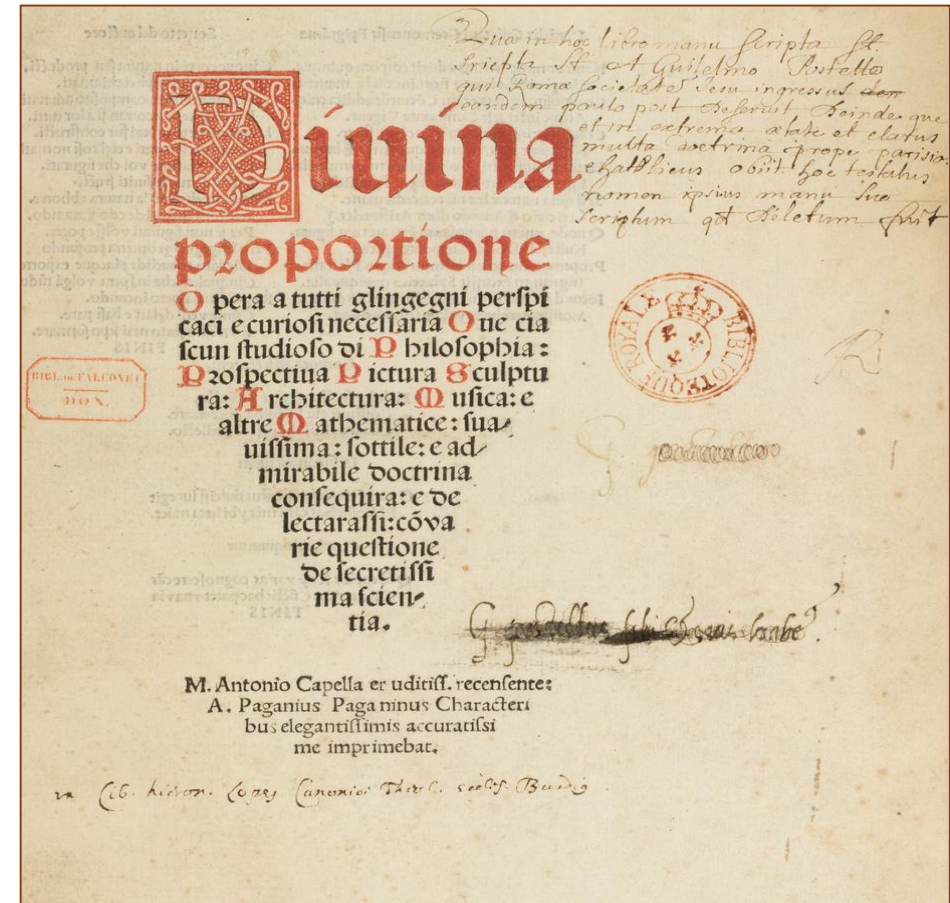 Qua in hoc libro manu scripta st.
scripta st et Guilelmo Postello
qui Romæ societatē Jesu ingressus
eandem paulo post deseruit deinde que
et in extrema ætate et clarus
multa doctrina prope parisios
obiit hoc testatus
nomen ipsius manu sua
scriptum qd deletum fuit
Diuina
proportione
O pera a tutti glingegni perspi
caci e curiosi necessaria O ue cia
scun studioso di P hilosophia:
P rospectiua P ictura S culptu
ra: A rchitectura: M usica: e
altre M athematice: sua
uissima: sottile: e ad
mirabile doctrina
consequira: e de
lectarassi: cōva
rie questione
de secretissi
ma scien
tia.
BIBLIOTEQUE ROYALE
BIBL. FALCONET
DON.
M. Antonio Capella er uditiss. recensente:
A. Paganius Paga ninus Characteri
bus elegantissimis accuratissi
me imprimebat.
G postellus sibi
Lib. hieron. Lopes Canonici Theol. eccles. Burdig